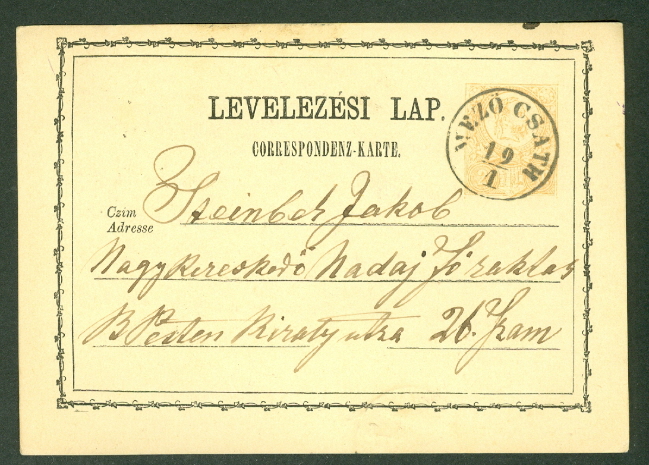 LEVELEZÉSI LAP.
CORRESPONDENZ-KARTE.
MEZŐ CSÁTH
19
1
Czim
Adresse
Steinbeh Jakob
Nagykereskedő Nadaj Fő raktar
B Pesten Kiraly utza 26. Szam